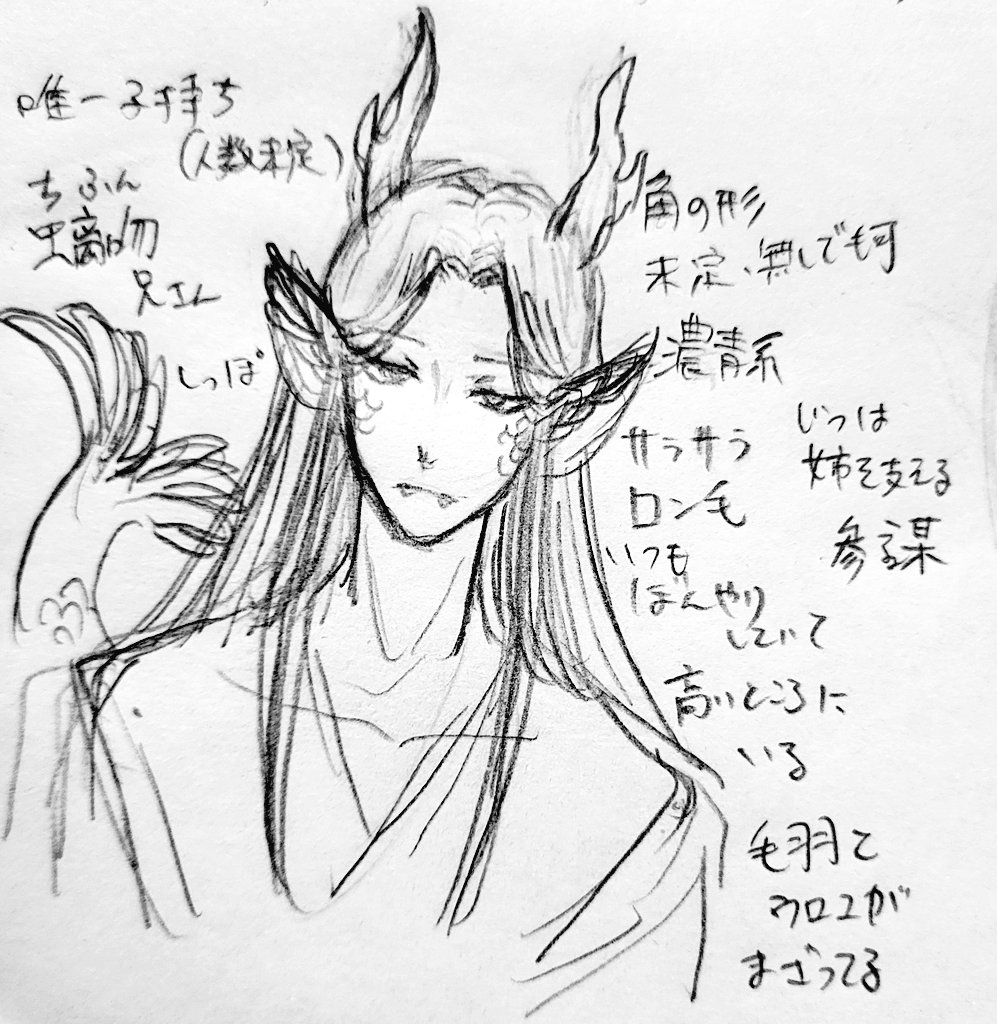 唯一子持ち
(人数未定)
ちふん
螭吻
兄さん
しっぽ
角の形
未定、無しでも可
濃青系
サラサラ
ロン毛
いつも
ぼんやり
していて
高いところに
いる
じつは
姉を支える
参謀
毛羽と
ウロコが
まざってる